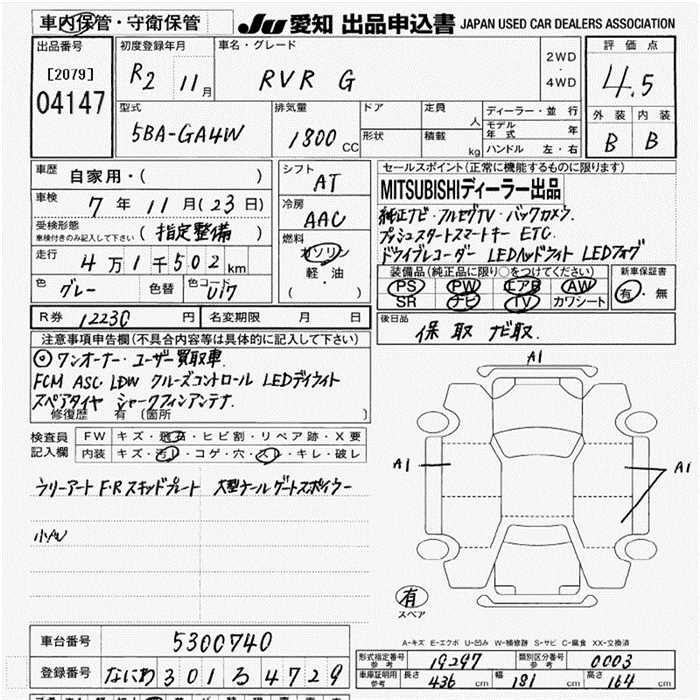 車内保管・守衛保管 JU 愛知 出品申込書 JAPAN USED CAR DEALERS ASSOCIATION
出品番号 初度登録年月 車名・グレード 評価点
[2079] R2 11月 RVR G 2WD・4WD 4.5
04147 型式 排気量 ドア 定員 人 ディーラー・並行 外装 内装
5BA-GA4W 1800CC 形状 積載 kg モデル年式 年 B B
ハンドル 左・右
車歴 自家用・( ) シフト AT セールスポイント(正常に機能するものに限ります)
車検 7年11月(23日) 冷房 AAC MITSUBISHIディーラー出品
受検形態 (指定整備) 純正ナビ・フルセグTV・バックカメラ.
車検付きのみ記入して下さい 燃料 プッシュスタートスマートキー ETC.
走行 4万1千502km ガソリン ドライブレコーダー LEDヘッドライト LEDフォグ
軽・油 装備品(純正品に限り○をつけてください) 新車保証書
色 グレー 色替 色コード U17 ( ) PS PW エアB AW 有・無
SR ナビ TV カワシート
R券 12230円 名変期限 月 日 後日品
保 取 ナビ取
注意事項申告欄(不具合内容等は具体的に記入して下さい)
◎ワンオーナー・ユーザー買取車 A1
FCM ASC LDW クルーズコントロール LEDデイライト
スペアタイヤ シャークフィンアンテナ.
修復歴 有〔箇所 〕
検査員記入欄 FW キズ・飛石・ヒビ割・リペア跡・X要
内装 キズ・汚レ・コゲ・穴・スレ・キレ・破レ
A1 A1
ラリーアート F・Rスキッドプレート 大型テールゲートスポイラー
小AU
有
スペア
車台番号 5300740 A-キズ E-エクボ U-凹み W-補修跡 S-サビ C-腐食 XX-交換済
形式指定番号 参考 19297 類別区分番号 参考 0003
登録番号 なにわ 301 る 4729 車庫証明用 参考 長さ 436cm 幅 181cm 高さ 164cm